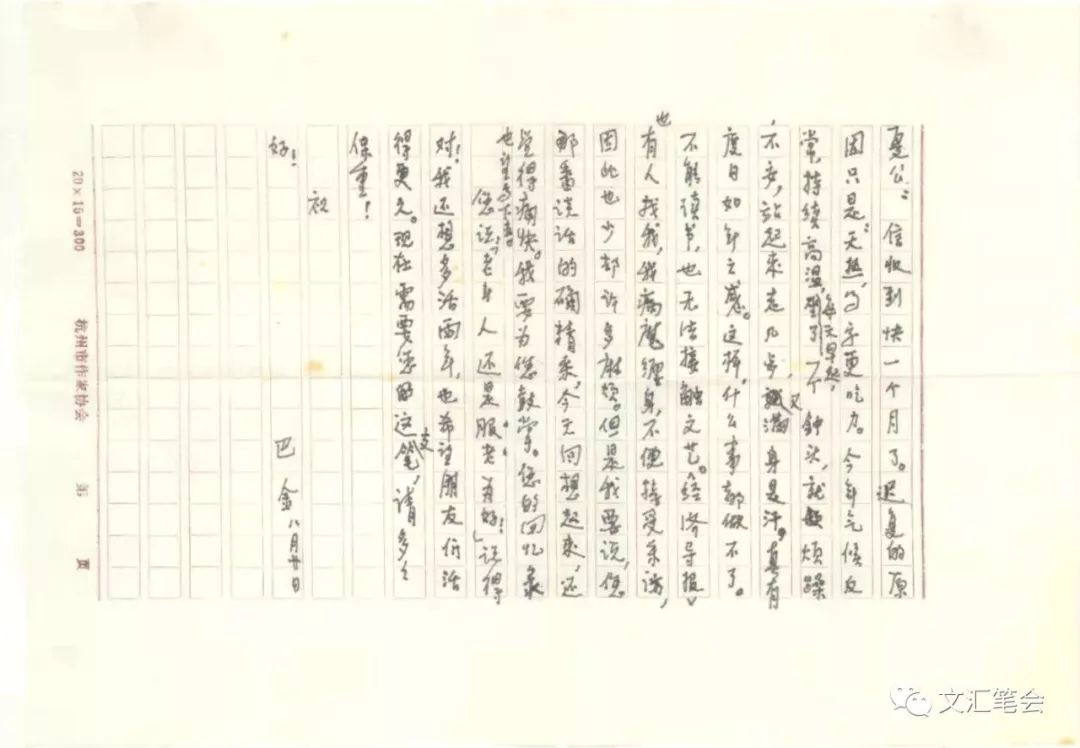 夏公：信收到快一个月了。迟复的原
因只是：天热，写字更吃力。今年气候反
常，持续高温，每天早起，坐了一个钟头，就烦躁
不安，站起来走几步，又满身是汗。真有
度日如年之感。这样，什么事都做不了。
不能读书，也无法接触文艺。《经济导报》
也有人找我，我病魔缠身，不便接受采访，
因此也少却许多麻烦。但是我要说，您
那番谈话的确精采，今天回想起来，还
觉得痛快。我要为您鼓掌。您的回忆录
也望写下去。
您说：“老年人还是服老为好！”说得
对！我还想多活两年，也希望朋友们活
得更久。现在需要您的这支笔，请多多
保重！
祝
好！
巴金 八月廿日
20×15=300
杭州市作家协会 第 页
文汇笔会